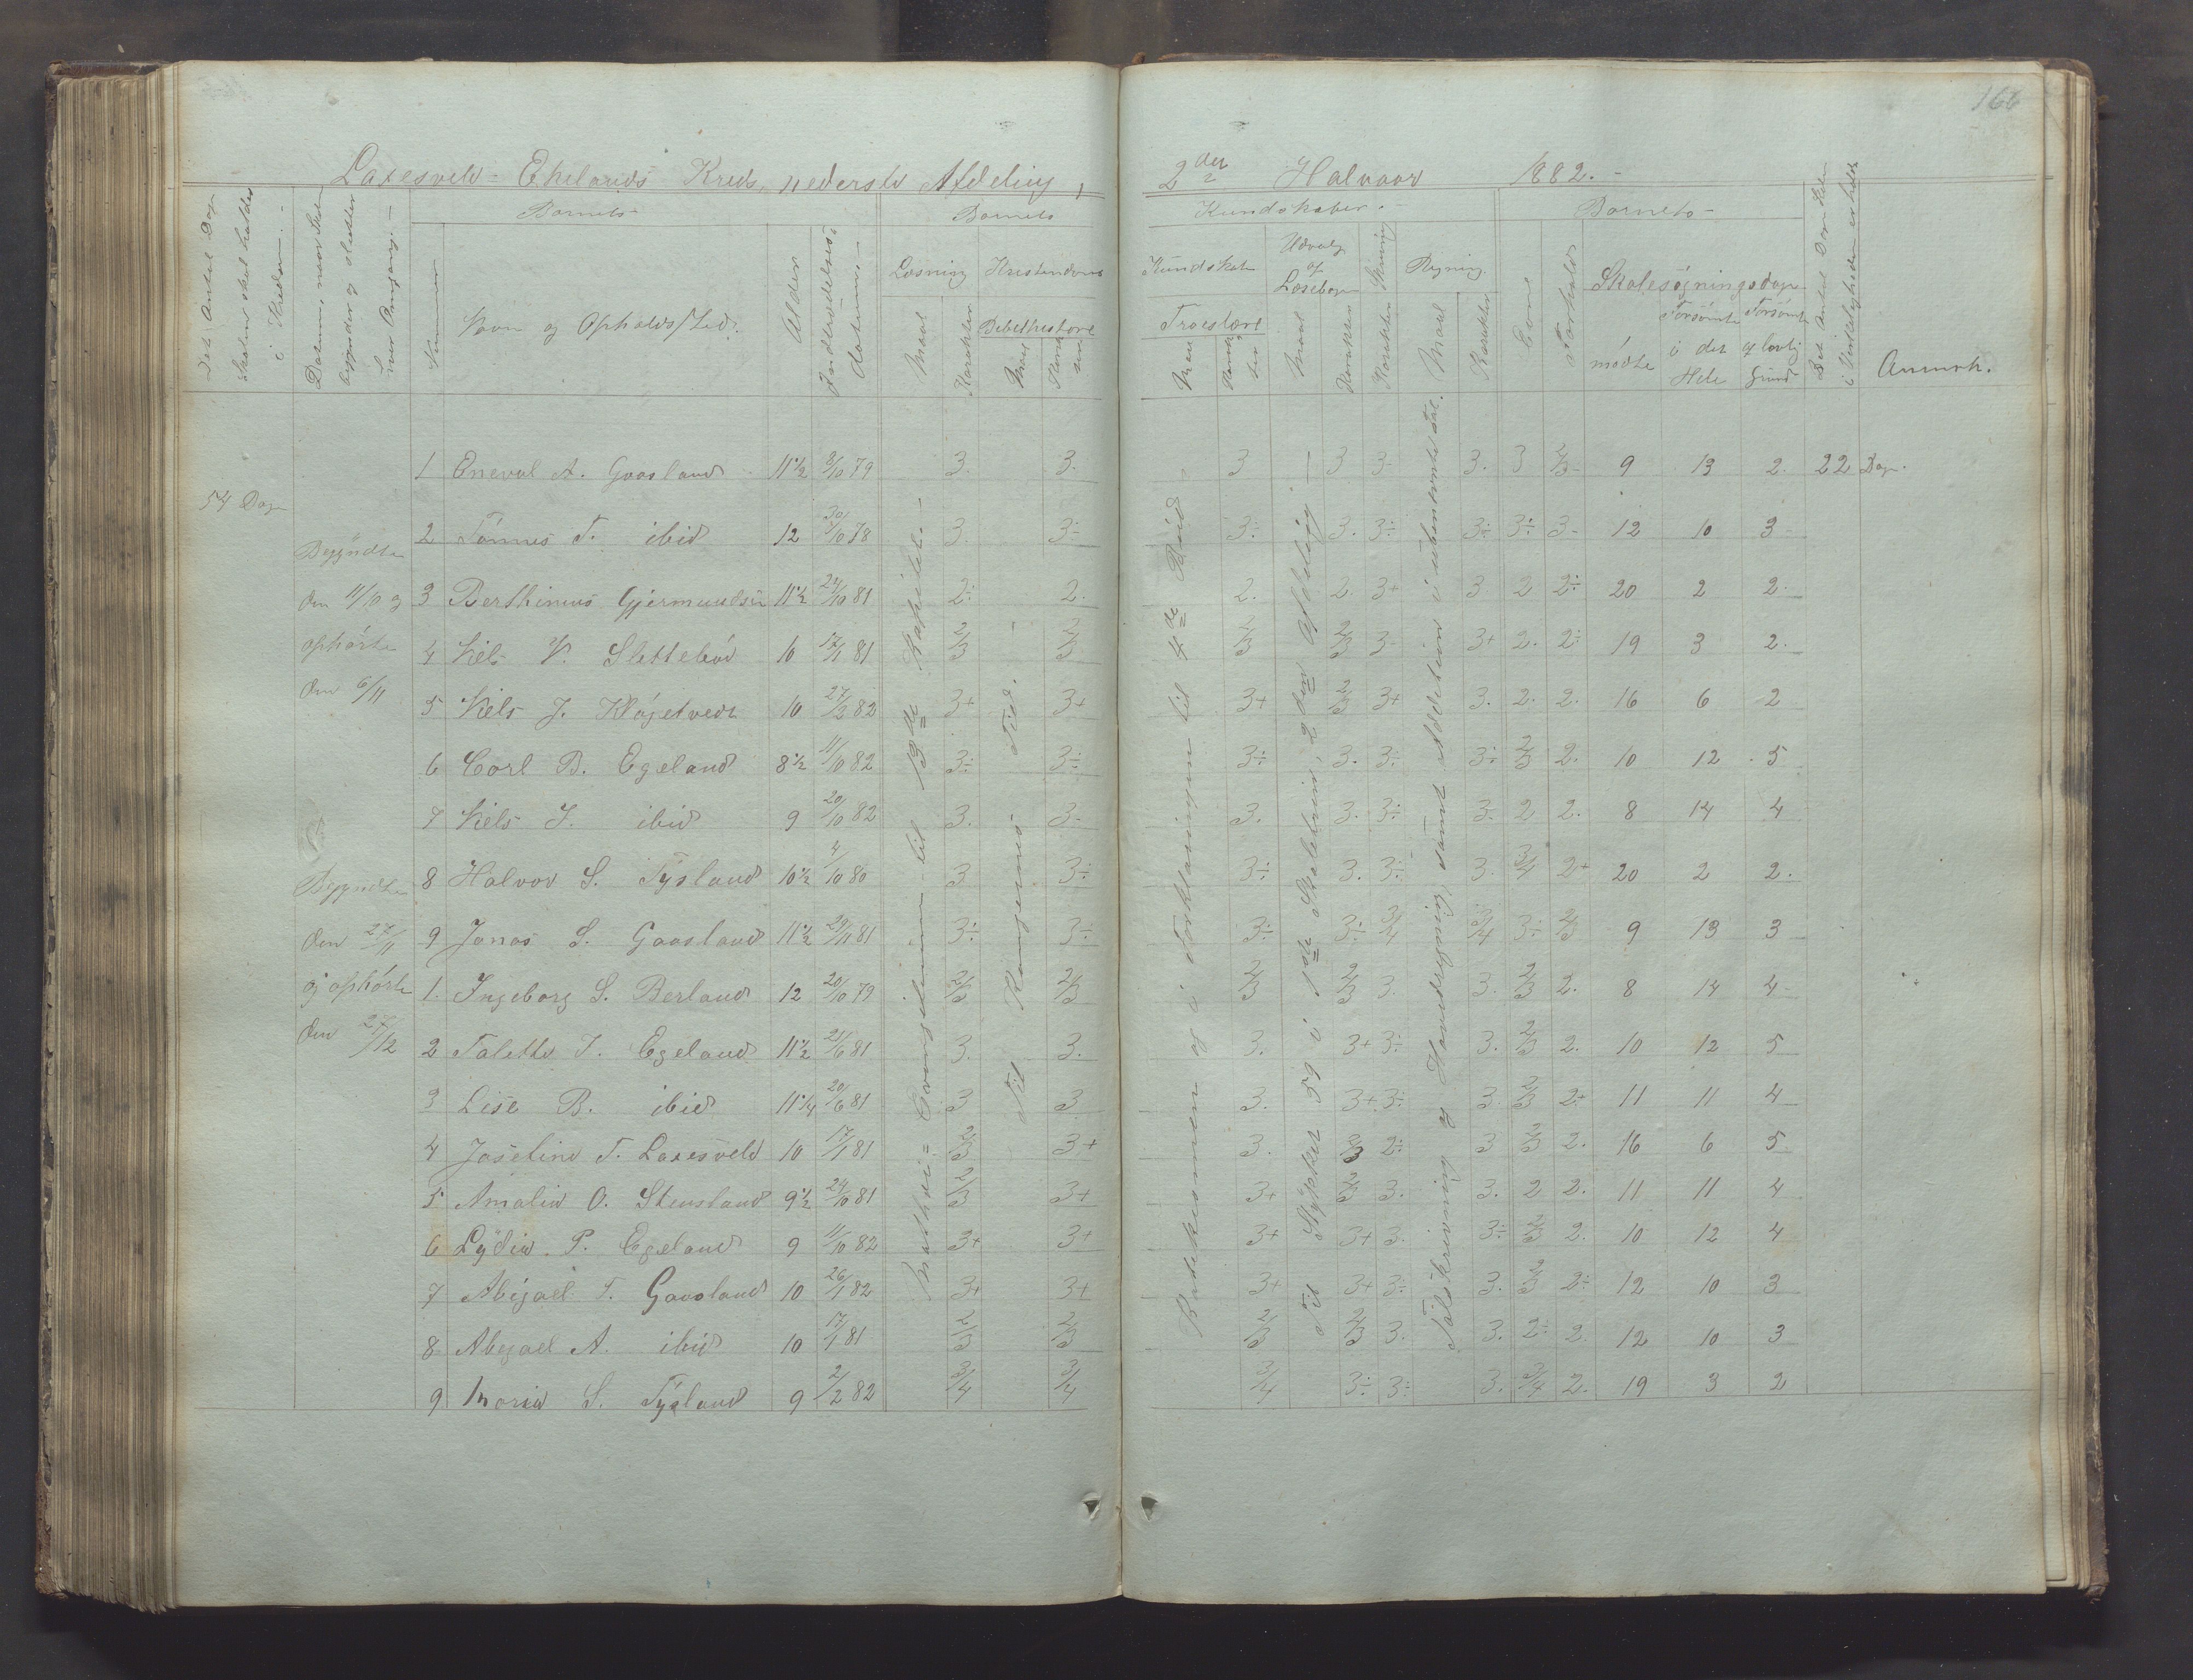 166
Laxesveld - Ekelands Kreds, nederste Afdeling, 2det Halvaar 1882.-
Det Antal Dage Skolen skal holdes i Kredsen.-
Datum, naar Skolen begynder og slutter hver Omgang.-
Barnets-
Barnets
Kundskaber.-
Barnets-
Nummer
Navn og Opholds/Sted.
Alder
Indtrædelses-Datum.-
Læsning
Kristendoms
Kundskab
Udvalg af Læsebogen
Skrivning
Regning
Evne
Forhold
Skolesøgningsdage
Det Antal Dage Skolen i Virkeligheden er holdt
Anmerk.
Maal
Karakter
Bibelhistorie
Maal
Karakter
Troeslære
Maal
Karakter
Maal
Karakter
Karakter
Maal
Karakter
mødte
Forsømte i det Hele
Forsømte af lovlig Grund
54 Dage
Begyndte den 11/10 og ophørte den 6/11
Begyndte den 27/11 og ophørte den 27/12
1 Eneval A. Gaasland 11½ 8/10 79 3. 3. 3 3 3- 3. 3 2/3 9 13 2. 22 Dage.
2 Tønnes T. ibid 12 30/10 78 3. 3÷ 3÷ 3. 3÷ 3÷ 3÷ 3- 12 10 3-
3 Berthinius Gjermundsen 11½ 24/10 81 2÷ 2. 2. 2. 3+ 3. 2 2÷ 20 2 2.
4 Niels V. Slettebø 10 17/1 81 2/3 2/3 2/3 2/3 3- 3+ 2. 2÷ 19 3 2.
5 Niels J. Kløgetvedt 10 27/2 82 3+ 3+ 3+ 2/3 3+ 3. 2. 2. 16 6 2
6 Carl B. Egeland 8½ 11/10 82 3÷ 3÷ 3÷ 3. 3÷ 3÷ 2/3 2. 10 12 5
7 Niels J. ibid 9 20/10 82 3. 3- 3. 3. 3÷ 3. 2 2. 8 14 4
8 Halvor S. Tysland 10½ 4/10 80 3 3÷ 3÷ 3. 3÷ 3. 3/4 2+ 20 2 2.
9 Jonas S. Gaasland 11½ 29/11 81 3÷ 3÷ 3÷ 3÷ 3/4 3/4 3÷ 2/3 9 13 3
1. Ingeborg S. Berland 12 20/10 79 2/3 2/3 2/3 2/3 3. 3. 2/3 2. 8 14 4-
2 Talette J. Egeland 11½ 21/6 81 3. 3. 3. 3+ 3÷ 3. 2/3 2. 10 12 5
3 Lise B. ibid 11¼ 20/6 81 3 3 3. 3+ 3÷ 3. 2/3 2+ 11 11 4
4 Joseline T. Laxesveld 10 17/1 81 2/3 3+ 3. 2/3 2÷ 3 2/3 2. 16 6 5
5 Amalia O. Stensland 9½ 24/10 81 2/3 3+ 3+ 2/3 3. 3. 2 2. 11 11 4
6 Lydia P. Egeland 9 11/10 82 3+ 3+ 3+ 3+ 3. 3÷ 2/3 2. 10 12 4
7 Abigael T. Gaasland 10 26/1 82 3+ 3+ 3+ 3+ 3÷ 3. 2/3 2÷ 12 10 3
8 Abegael A. ibid 10 17/1 81 2/3 2/3 2/3 2/3 3. 3. 2÷ 2. 12 10 3
9 Maria S. Tysland 9 2/2 82 3/4 3/4 3/4 3÷ 3÷ 3. 3/4 2. 19 3 2
Mathæi = Evangelium til 13de Kapitel.-
Til Kongernes Tid.-
Katekismen og i Forklaringen til 4de Bud-
Til Stykket 59 i 1ste Skoletrin, 2den Afdeling-
Talskrivning og Hovedregning, samt Addition i ubenævnte Tal.